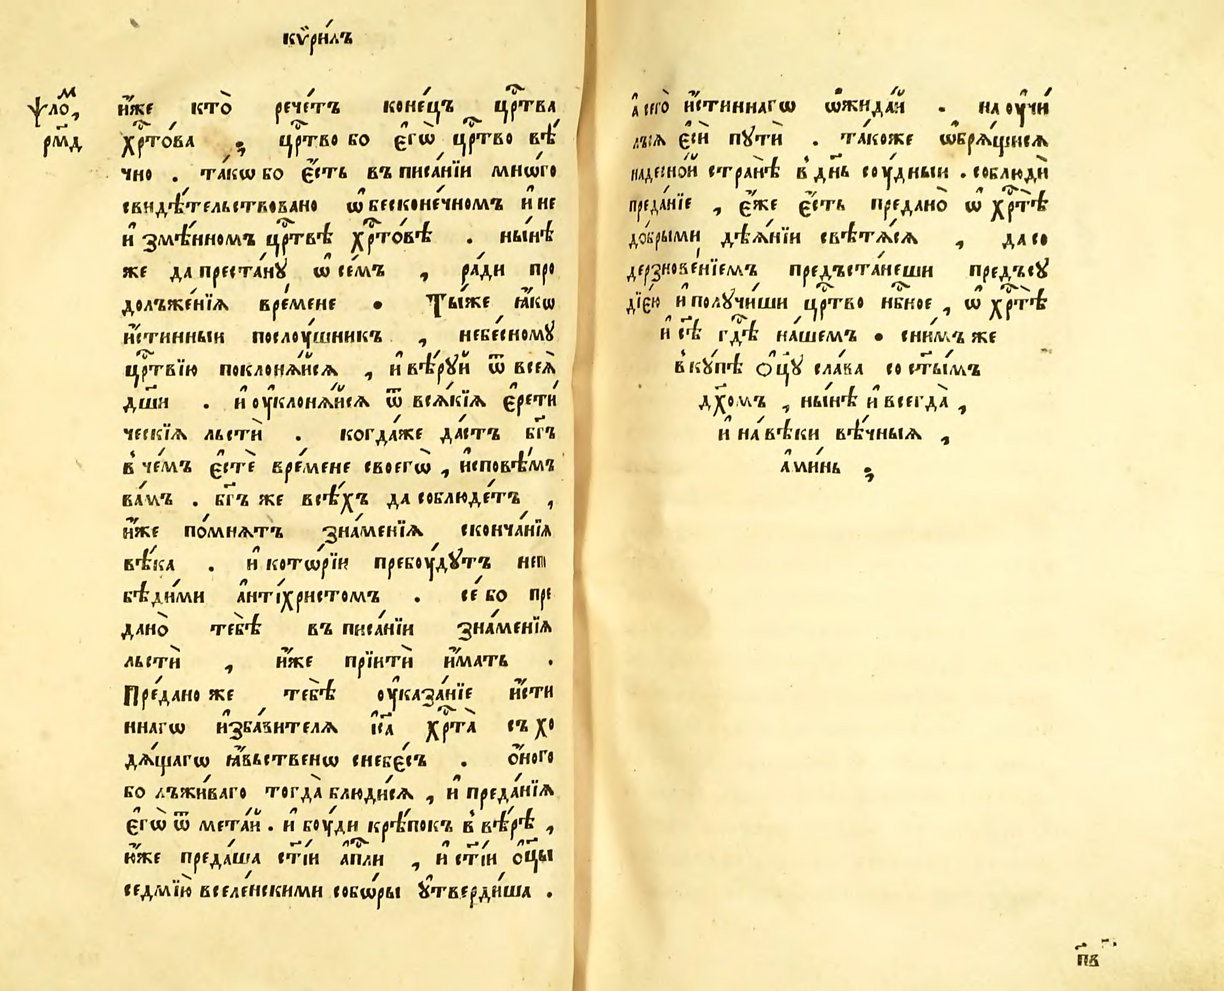 кѷри́лъ
ѱло́м,
рм҃д
и҆́же кто̀ рече́тъ коне́цъ црⷭ҇тва
хрⷭ҇то́ва ; црⷭ҇тво бо є҆гѡ̀ црⷭ҇тво вѣ́
чно . та́кѡ бо є҆́сть въ писа́нїи мно́гѡ
свидѣ́тельствовано ѡ҆ бесконе́чномъ и҆ не
и҆ змѣ́нномъ црⷭ҇твѣ хрⷭ҇то́вѣ . ны́нѣ
же да преста́нꙋ ѡ҆ се́мъ , ра́ди про
долъже́нїѧ вре́мене • Ты́же ꙗ҆́кѡ
и҆́стинныи послоу́шникъ , небе́сномꙋ
црⷭ҇твїю поклонѧ́йсѧ , и҆ вѣ́рꙋй ѿ всеѧ̀
дш҃и . и҆ оу҆клонѧ́йсѧ ѿ всѧ́кїѧ є҆рети́
ческїѧ льстѝ . когда́же да́стъ бг҃ъ
в҆ че́мъ є҆стѐ вре́мене своегѡ̀ , и҆сповѣ́мъ
ва́мъ . бг҃ъ же всѣ́хъ да соблюде́тъ ,
и҆́же по́мнѧтъ зна́менїѧ сконча́нїѧ
вѣ́ка . и҆ кото́рїи пребоу́дꙋтъ неп
бѣди́ми а҆нтїхри́стомъ . се́ бо пре
дано̀ тебѣ̀ въ писа́нїи зна́менїѧ
льстѝ , и҆́же прїитѝ и҆́мать .
Пре́дано же тебѣ̀ оу҆каза́нїе и҆́сти
ннагѡ и҆зба́вителѧ і҆с҃а хрⷭ҇та̀ съ хо
дѧ́щагѡ ꙗ҆́вьственѡ с небе́съ . о҆́ного
бо лъжи́ваго тогда̀ блюди́сѧ , и҆ преда́нїѧ
є҆гѡ̀ ѿ мета́й . и҆ боу́ди крѣ́покъ в҆ вѣ́рѣ ,
ю҆́же преда́ша ст҃і́и а҆пⷭ҇ли , и҆ ст҃і́и о҆ц҃ы
седмїю̀ вселе́нскими собѡ́ры оу҆тверди́ша .
а҆ сего̀ и҆́стиннагѡ ѡ҆жида́й . на оу҆чи́
лъсѧ є҆сѝ пꙋтѝ . та́коже ѡ҆брѧ́щисѧ
на десно́й странѣ̀ в҆ дн҃ь соу́дныи . соблюдѝ
преда́нїе , є҆́же є҆́сть предано̀ ѡ҆ хрⷭ҇тѣ̀
до́брыми дѣѧ́нїи свѣтѧ́сѧ , да со
дерзнове́нїемъ предъста́неши предъсꙋ
дїе́ю и҆ полꙋ́чиши црⷭ҇тво нб҃ное , ѡ҆ хрⷭ҇тѣ̀
і҆с҃ѣ гдⷭ҇ѣ на́шемъ • с ни́мъ же
в҆кꙋ́пѣ о҆ц҃ꙋ сла́ва со ст҃ы́мъ
дх҃омъ , ны́нѣ и҆ всегда̀ ,
и҆ на вѣ́ки вѣ́чныѧ ,
а҆ми́нь ;
п҃в